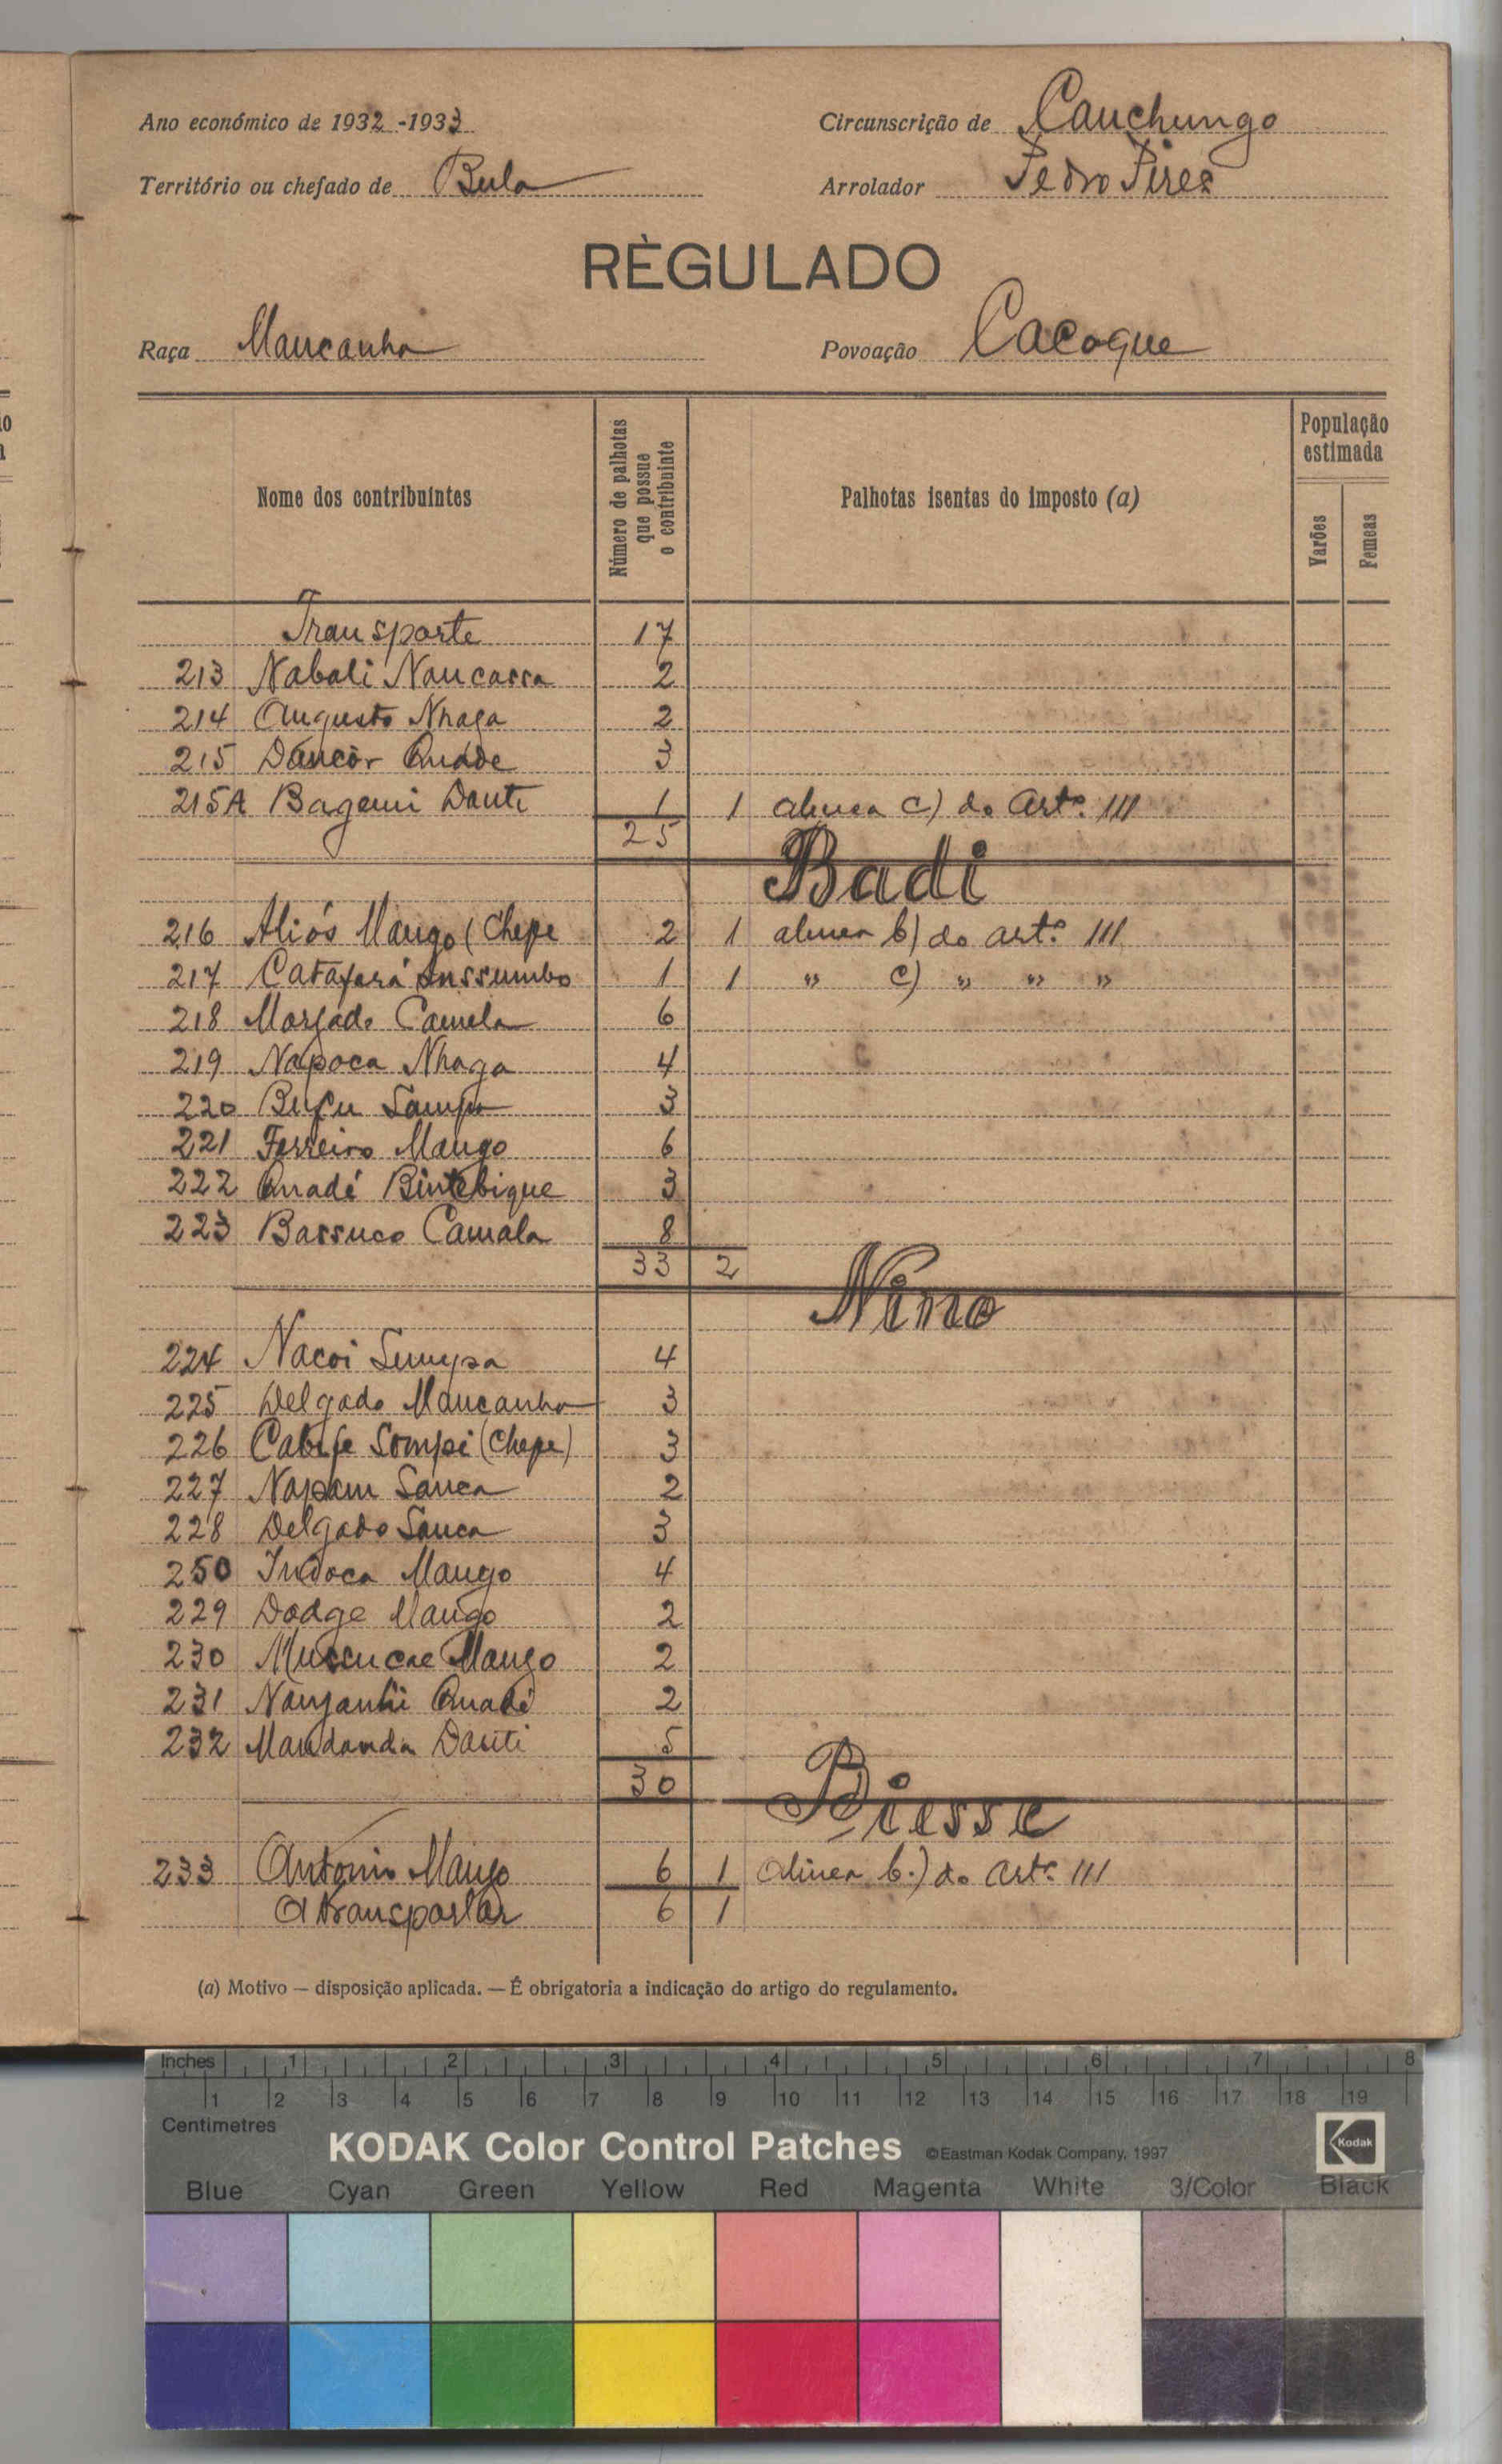 Ano económico de 1932-1933
Circunscrição de Cauchungo
Território ou chefado de Bula
Arrolador Pedro Pires
RÈGULADO
Raça Mancanha
Povoação Cacoque
Nome dos contribuintes
Número de palhotas que possue o contribuinte
Palhotas isentas do imposto (a)
População estimada
Varões
Femeas
Transporte 17
213 Nabali Naucassa 2
214 Augusto Nhaga 2
215 Dancór Quade 3
215A Bagemi Dauti 1 1 alinea c) do artº. III
25
Badi
216 Aliós Mango (Chepe 2 1 alinea b) do artº. III
217 Catafará Inssumbo 1 1 " c) " " "
218 Morgado Camela 6
219 Napoca Nhaga 4
220 Sampa 3
221 Ferreiro Mango 6
222 Quadé Bintebique 3
223 Bassuco Camala 8
33 2
Nimo
224 Nacoi 4
225 Delgado Mancanha 3
226 Sompi (Chepe) 3
227 Sanca 2
228 Delgado Sanca 3
250 Indoca Mango 4
229 Dodge Mango 2
230 Mango 2
231 Quadé 2
232 Mandanda Dauti 5
30
Biesse
233 Antonio Mango 6 1 alinea b.) do artº III
A transportar 6 1
(a) Motivo — disposição aplicada. — É obrigatoria a indicação do artigo do regulamento.
Inches 1 2 3 4 5 6 7 8
1 2 3 4 5 6 7 8 9 10 11 12 13 14 15 16 17 18 19
Centimetres
KODAK Color Control Patches ©Eastman Kodak Company, 1997 Kodak
Blue Cyan Green Yellow Red Magenta White 3/Color Black